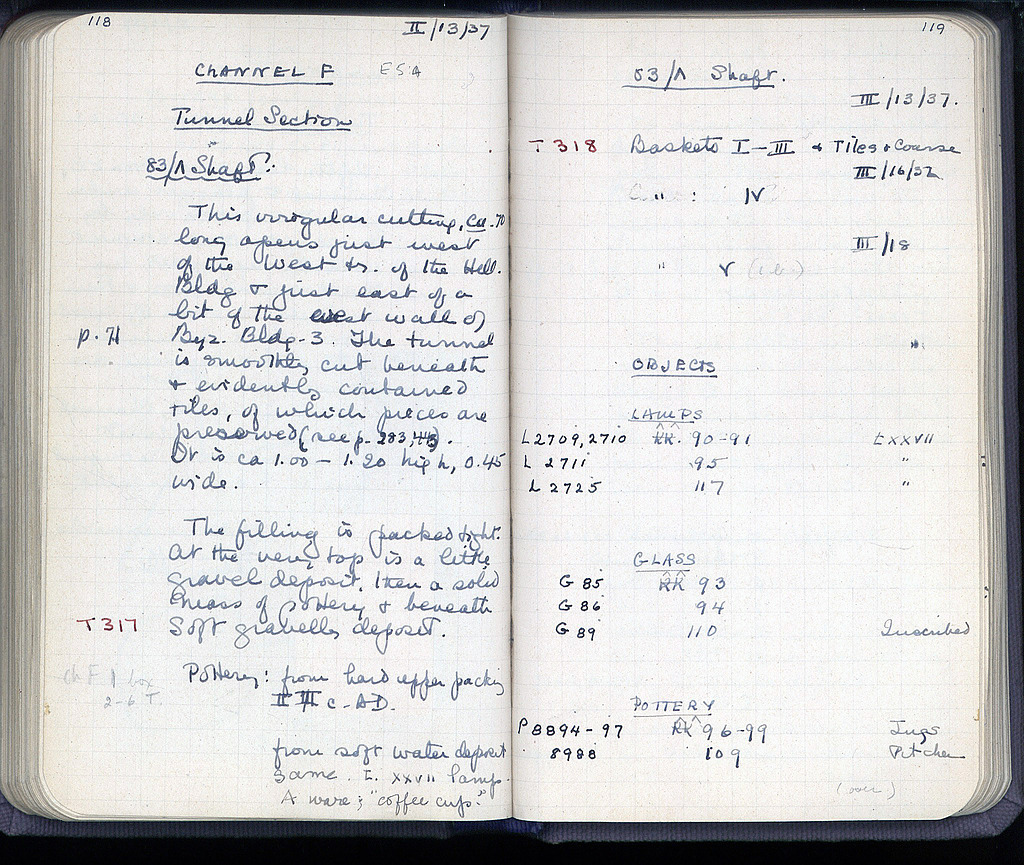 118
II/13/37
CHANNEL F
Tunnel Section
83/Λ Shaft.
This irregular cutting, ca. .70
long opens just west
of the West tr. of the Hell.
Bldg & just east of a
bit of the west wall of
p. 71
Byz. Bldg. 3. The tunnel
is smoothly cut beneath
& evidently contained
tiles, of which pieces are
preserved (see p. 283,
It is ca 1.00 – 1.20 high, 0.45
wide.
The filling is packed tight.
At the very top is a little
gravel deposit, then a solid
mass of pottery & beneath
T317
soft gravelly deposit.
ch F 1 box
2-6 T.
Pottery: from hard upper packing
II III c. AD.
from soft water deposit
same. L. XXVII lamps.
A ware; "coffee cups."
119
83/Λ Shaft.
III/13/37.
T318 Baskets I–III & Tiles & Coarse
III/16/37
" : IV
III/18
" V
OBJECTS
LAMPS
L2709, 2710 ΚΚ. 90-91 LXXVII
L 2711 95 "
L 2725 117 "
GLASS
G 85 ΚΚ 93
G 86 94
G 89 110 Inscribed
POTTERY
P8894-97 ΚΚ 96-99 Jugs
8988 109 Pitcher
(over)